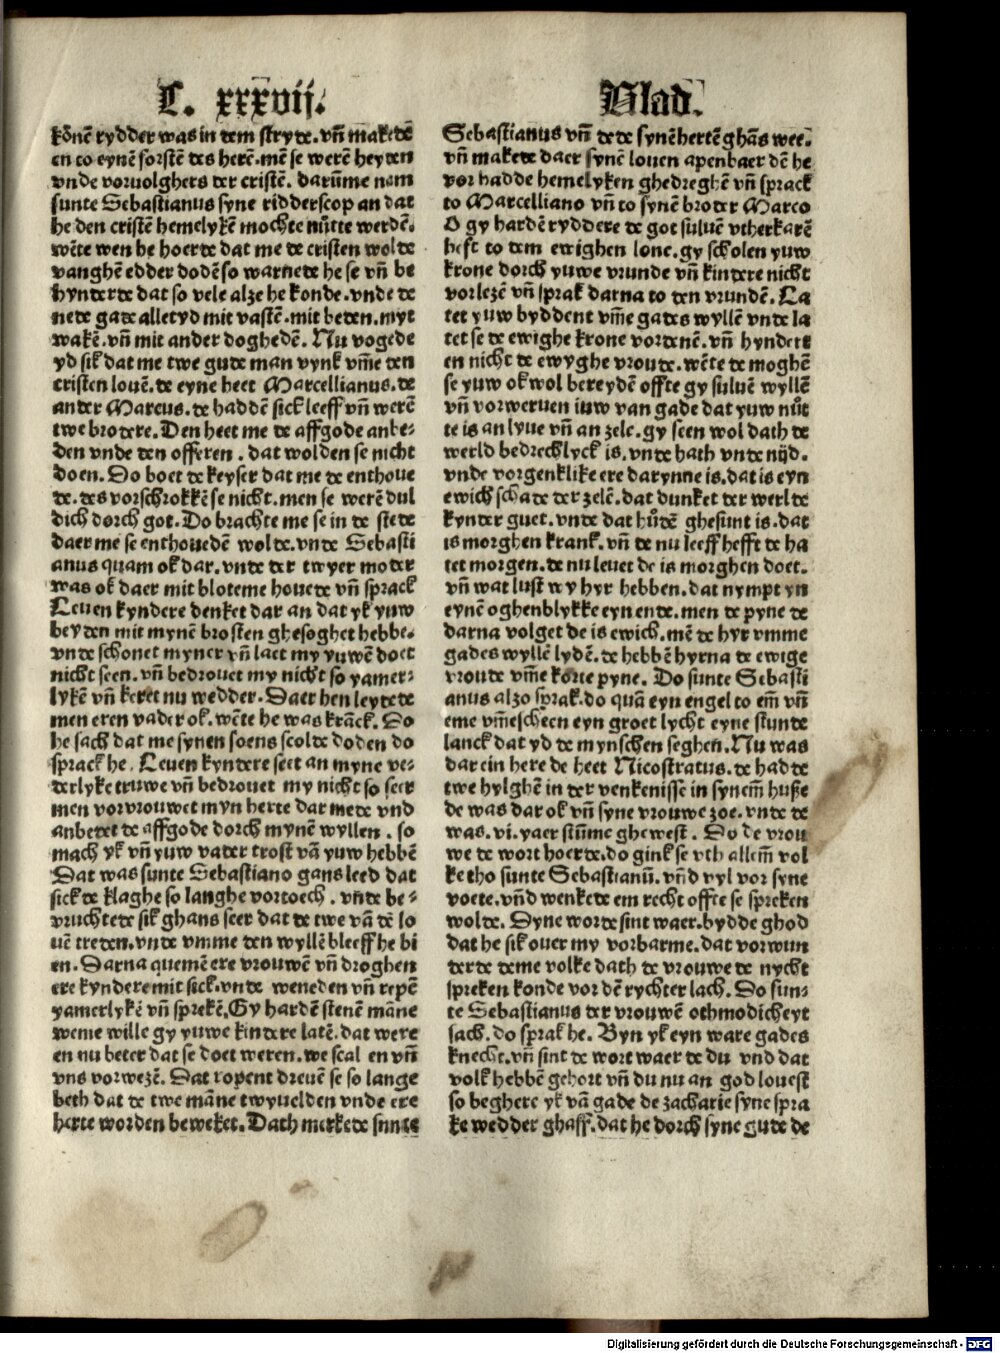 C. xxxvij. Blad.
kŏnē rydder was in dem stryde. vn̄ makedē
en to eynē forstē des herē. mē se werē heyden
vnde voruolghers der cristē. darūme nam
sunte Sebastianus syne ridderscop an dat
he den cristē hemelykē mochte nůtte werdē.
wēte wen he hoerde dat me de cristen wolde
vanghē edder dodē so warnede he se vn̄ be
hynderde dat so vele alze he konde. vnde de
nede gade alletyd mit vastē. mit beden. myt
wakē. vn̄ mit ander doghedē. Nu vogede
yd sik dat me twe gude man vynk vm̄e den
cristen louē. de eyne heet Marcellianus. de
ander Marcus. de haddē sick leeff vn̄ werē
twe brodere. Den heet me de affgode anbe-
den vnde den offeren. dat wolden se nicht
doen. Do boet de keyser dat me de enthoue
de. des vorschrokkē se nicht. men se werē dul
dich dorch got. Do brachte me se in de stede
daer me se enthouedē wolde. vnde Sebasti
anus quam ok dar. vnde der twyer moder
was ok daer mit bloteme houede vn̄ sprack
Leuen kyndere denket dar an dat yk yuw
beyden mit mynē brosten ghesoghet hebbe.
vnde schonet myner vn̄ laet my yuwē doet
nicht seen. vn̄ bedrouet my nicht so yamer-
lykē vn̄ keret nu wedder. Daer hen leydede
men eren vader ok. wēte he was krāck. Do
he sach dat me synen soens scolde doden do
sprack he. Leuen kyndere seet an myne ve-
derlyke truwe vn̄ bedrouet my nicht so seer
men vorvrouwet myn herte dar mede vnd
anbedet de affgode dorch mynē wyllen. so
mach yk vn̄ yuw vader trost vā yuw hebbē
Dat was sunte Sebastiano gans leed dat
sick de klaghe so langhe vortoech. vnde be-
vruchtede sik ghans seer dat de twe vā dē lo
uē treden. vnde vmme den wyllē bleeff he bi
en. Darna quemē ere vrouwē vn̄ droghen
ere kyndere mit sick. vnde weneden vn̄ repē
yamerlykē vn̄ sprekē. Gy hardē stenē māne
weme wille gy yuwe kindere latē. dat were
en nu beter dat se doet weren. we scal en vn̄
vns vorwezē. Dat ropent dreuē se so lange
beth dat de twe māne twyuelden vnde ere
herte worden beweket. Dath merkede sunte
Sebastianus vn̄ dede synē hertē ghās wee.
vn̄ makede daer synē louen apenbaer dē he
vor hadde hemelyken ghedreghē vn̄ sprack
to Marcelliano vn̄ to synē broder Marco
O gy hardē ryddere de got suluē vtherkarē
heft to dem ewighen lone. gy scholen yuw
krone dorch yuwe vrunde vn̄ kindere nicht
vorlezē vn̄ sprak darna to den vrundē. La
tet yuw byddent vm̄e gades wyllē vnde la
tet se de ewighe krone vordenē. vn̄ hyndere
en nicht de ewyghe vroude. wēte de moghē
se yuw ok wol bereydē offte gy suluē wyllē
vn̄ vorweruen iuw van gade dat yuw nůt
te is an lyue vn̄ an zele. gy seen wol dath de
werld bedrechlyck is. vnde hath vnde nijd.
vnde vorgenklike ere darynne is. dat is eyn
ewich schade der zelē. dat dunket der werlde
kynder guet. vnde dat hůdē ghesunt is. dat
is morghen krank. vn̄ de nu leeff hefft de ha
tet morgen. de nu leuet de is morghen doet.
vn̄ wat lust wy hyr hebben. dat nympt yn
eynē oghenblykke eyn ende. men de pyne de
darna volget de is ewich. mē de hyr vmme
gades wyllē lydē. de hebbē hyrna de ewige
vroude vm̄e korte pyne. Do sunte Sebasti
anus alzo sprak. do quā eyn engel to em vn̄
eme vm̄escheen eyn groet lycht eyne stunde
lanck dat yd de mynschen seghen̄. Nu was
dar ein here de heet Nicostratus. de hadde
twe hylghē in der venkenisse in synem̄ huße
de was dar ok vn̄ syne vrouwe zoe. vnde de
was. vi. yaer stūme ghewest. Do de vrou
we de wort hoerde. do gink se vth allem̄ vol
ke tho sunte Sebastianū. vn̄d vyl vor syne
voete. vn̄d wenkede em recht offte se spreken
wolde. Dyne worde sint waer. bydde ghod
dat he sik ouer my vorbarme. dat vorwun
derde deme volke dath de vrouwe de nycht
spreken konde vor dē rychter lach. Do sun-
te Sebastianus der vrouwē othmodicheyt
sach. do sprak he. Byn yk eyn ware gades
knecht. vn̄ sint de wort waer de du vnd dat
volk hebbē gehort vn̄ du nu an god louest
so beghere yk vā gade de zacharie syne spra
ke wedder ghaff. dat he dorch syne gude de
Digitalisierung gefördert durch die Deutsche Forschungsgemeinschaft - DFG